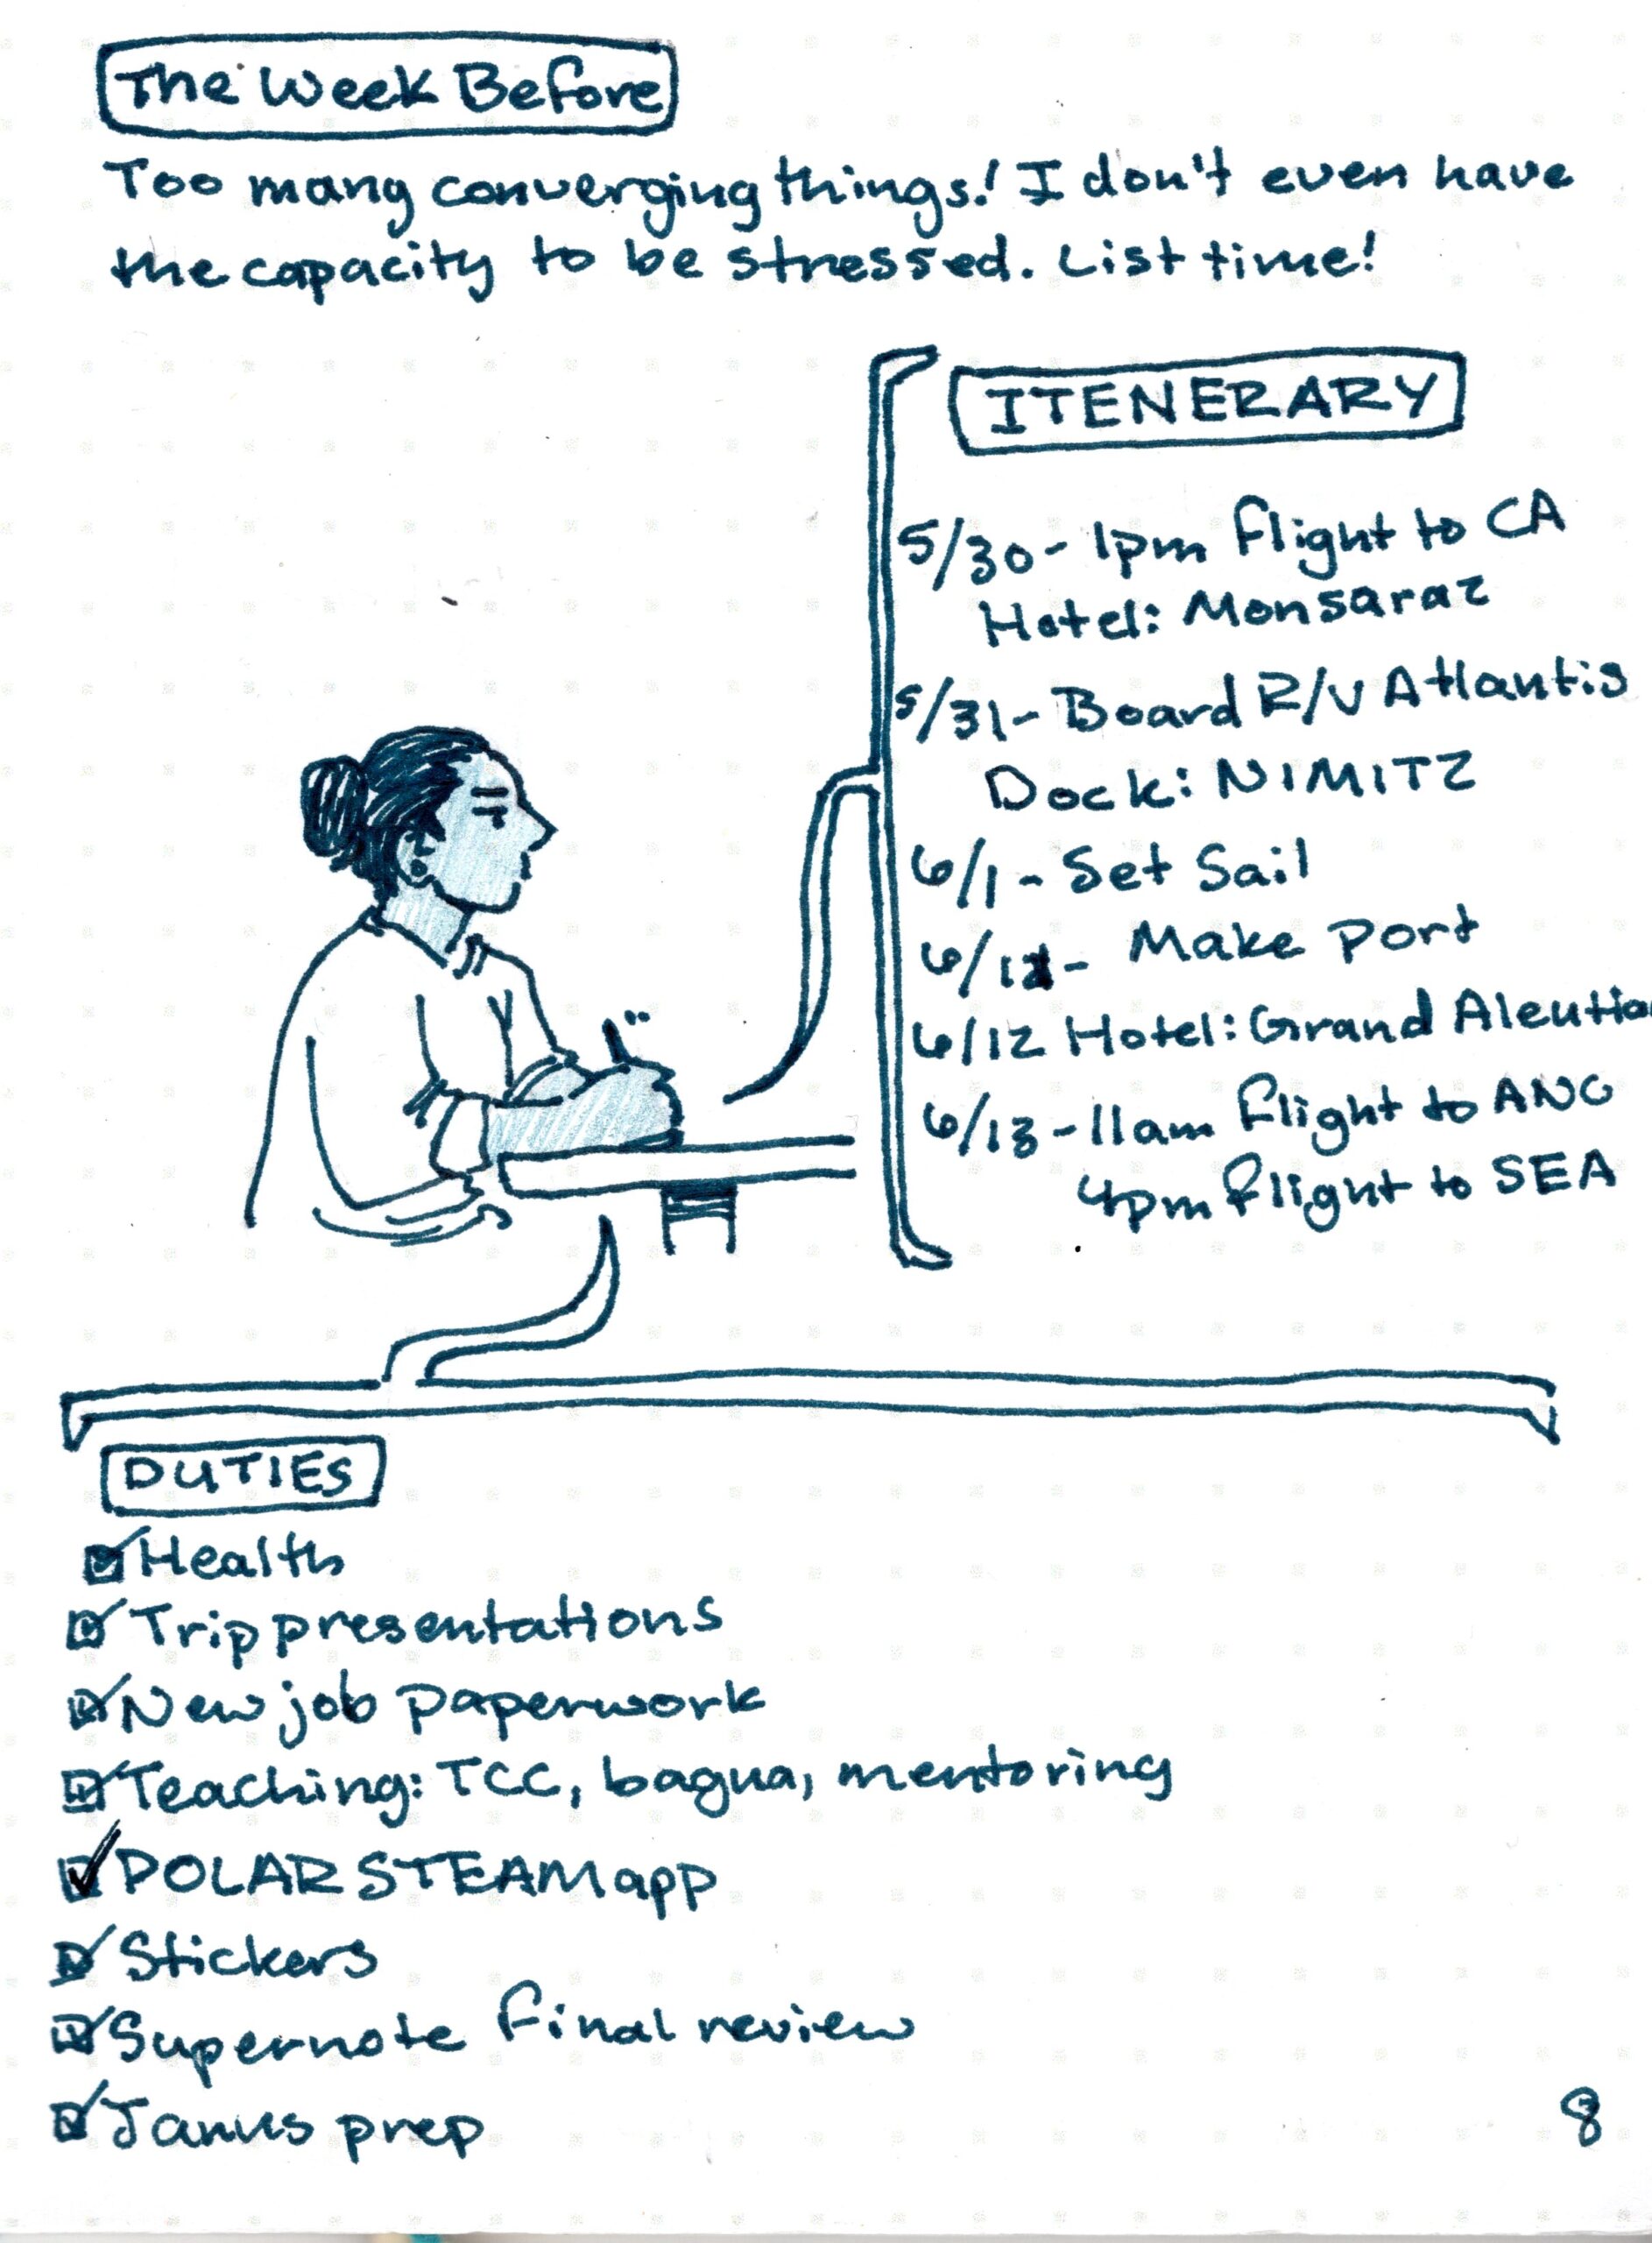 The Week Before
Too many converging things! I don't even have
the capacity to be stressed. List time!
ITENERARY
5/30 - 1pm flight to CA
Hotel: Monsaraz
5/31 - Board R/V Atlantis
Dock: NIMITZ
6/1 - Set Sail
6/11 - Make port
6/12 Hotel: Grand Aleutia
6/13 - 11am flight to ANC
4pm flight to SEA
DUTIES
Health
Trip presentations
New job paperwork
Teaching: TCC, bagua, mentoring
POLAR STEAM app
Stickers
Supernote final review
Janus prep
8